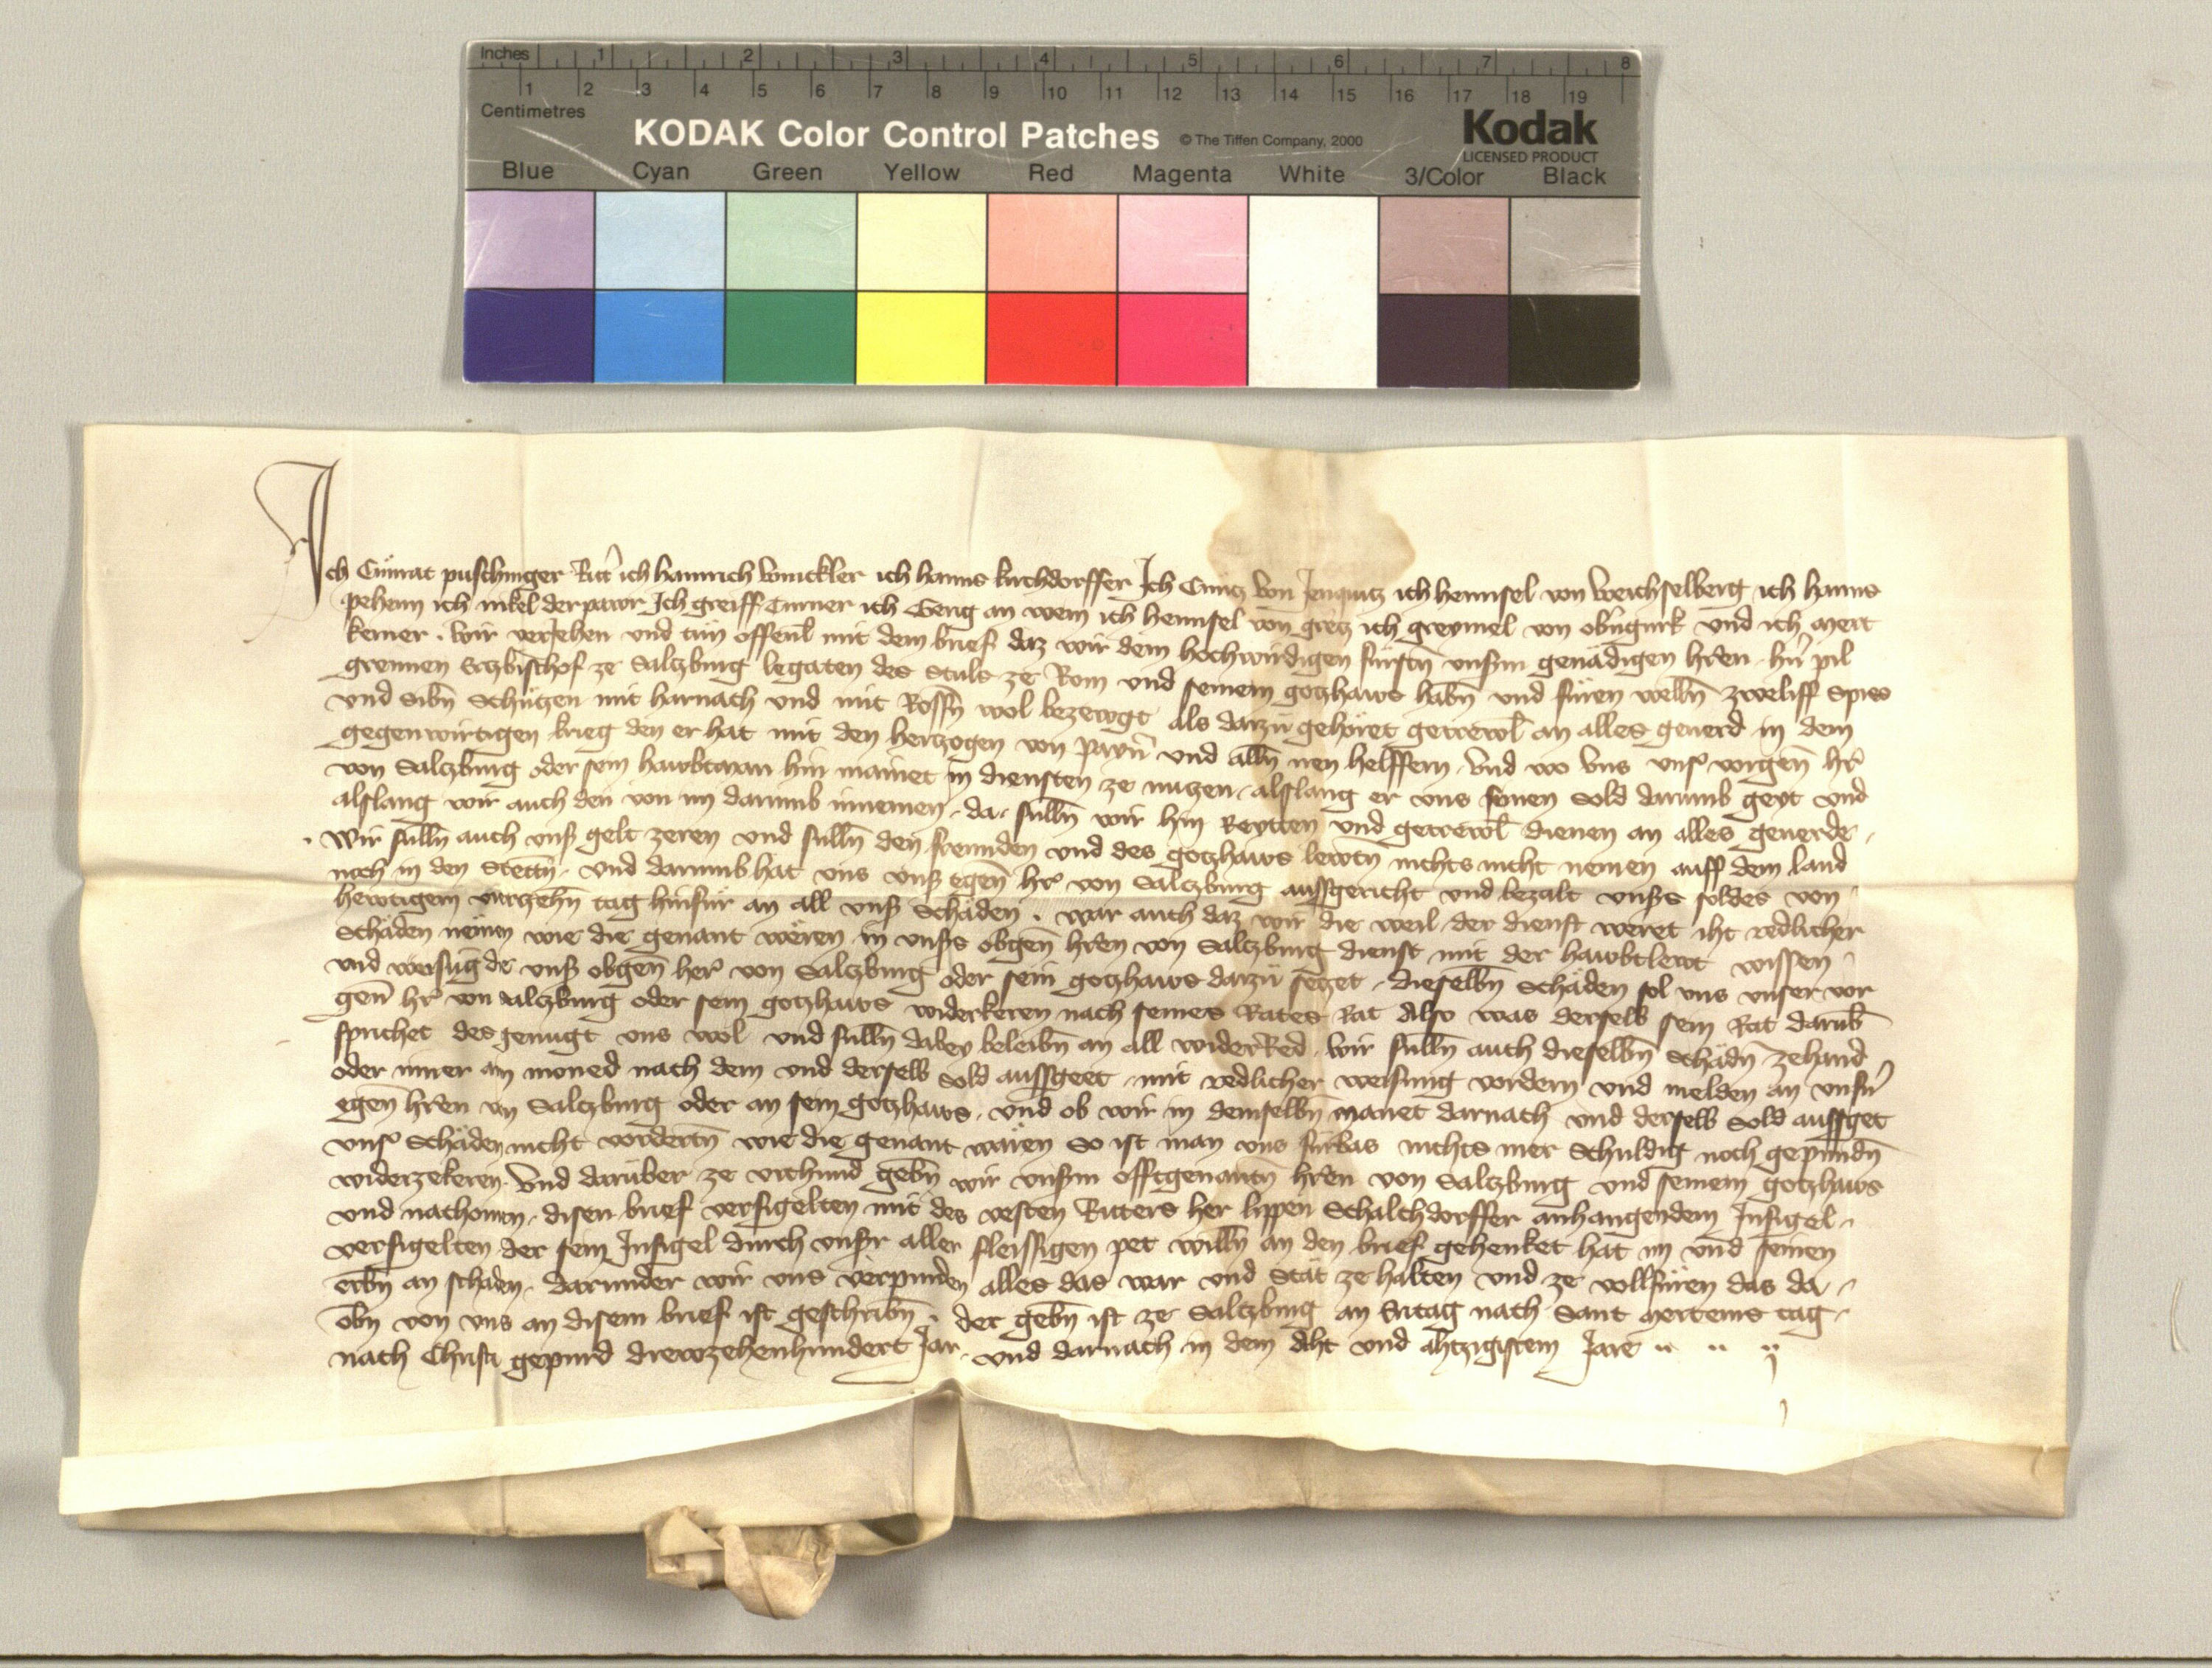 Inches 1 2 3 4 5 6 7 8
1 2 3 4 5 6 7 8 9 10 11 12 13 14 15 16 17 18 19
Centimetres
KODAK Color Control Patches © The Tiffen Company, 2000 Kodak
LICENSED PRODUCT
Blue Cyan Green Yellow Red Magenta White 3/Color Black
Ich Cůnrat puschinger Ritt̄ ich hainrich Winckler ich hanns kirchdorffer Ich Cuncz von ich hennsel von Weichselberg ich hanns
pehem ich nikel der pawr Ich greiff Turner ich Geng an wem ich hennsel von gretz ich greymel von obngurk und ich mert
kerner. wir veriehen und tůn offenl̄ mit dem brief daz wir dem hochwirdigen fürstn̄ unserm genädigen hr̄en hr̄n pil
greimen Erzbischof ze Salczburg legaten des Stuls ze Rom und seinem gotzhaws habn̄ und füren welln̄ zweliff Spiss
und Sibn̄ Schützen mit harnach und mit Rossn̄ wol bezewgt als darzů gehöret getrewl̄ an alles geuerd in dem
gegenwirtigen krieg den er hat mit den herczogen von payrn̄ und alln̄ iren helffern. Und wo uns uns̄ vorgen̄ hr̄
von Salczburg oder sein hawbtman hin mainet in diensten ze nuczen, alslang er uns seinen Sold darumb geyt und
alslang wir auch den von im darumb innemen, da sulln̄ wir hin Reytten und getrewl̄ dienen an alles geuerde.
Wir sulln̄ auch uns̄ gelt zeren und sulln̄ den frewnden und des gotzhaws lewtn̄ nichts nicht nemen auff dem land
noch in den Stettn̄. und darumb hat uns uns̄ egen̄ hr̄ von Salczburg aussgericht und bezalt uns̄s soldes von
hewtigem virczehn̄ tag hinfür an all uns̄ Schäden. war auch daz wir die weil der dienst weret iht redlicher
Schäden nemen wie die genant weren in uns̄s obgen̄ hr̄en von Salczburg dienst mit der hawbtlewt wissen
und weisung der uns̄ obgen̄ her̄ von Salczburg oder sein gotzhaws darzů seczet, dieselbn̄ Schäden sol uns unser vor
gen̄ hr̄ von Salczburg oder sein gotzhaws widerkeren nach seines Rates Rat Also was derselb sein Rat darub̄
sprichet des genugt uns wol und sulln̄ dabey beleibn̄ an all widerRed. wir sulln̄ auch dieselbn̄ Schädn̄ zehand
oder inner aim moned nach dem und derselb Sold aussgeet mit redlicher weisung vordern und melden an unsrn̄
egen̄ hr̄en von Salczburg oder an sein gotzhaws. und ob wir in demselbn̄ manet darnach und derselb Sold aussget
uns̄ Schäden nicht vordertn̄ wie die genant wären So ist man uns fürbas nichts mer Schuldig noch gepundn̄
widerzekeren. Und darüber ze urchund gebn̄ wir unserm offtgenantn̄ hr̄en von Salczburg und seinem gotzhaws
und nachomen, disen brief versigelten mit des vesten Ritters her lippen Schalchdorffer anhangendem Insigel
versigelten der sein Insigel durch unser aller fleissigen pet willn̄ an den brief gehenket hat im und seinen
erbn̄ an schaden. darunder wir uns verpinden alles das war und Stät ze halten und ze vollfüren das da
obn̄ von uns an disem brief ist geschribn̄. der gebn̄ ist ze Salczburg an Eritag nach Sant mertens tag
nach Christi gepurd drewzehenhundert Jar, und darnach in dem Aht und ahtzigistem Jare